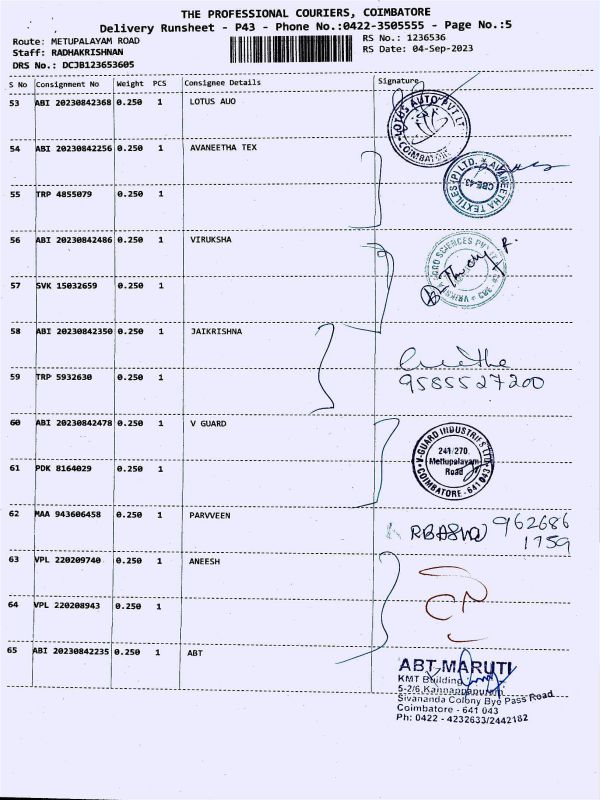 THE PROFESSIONAL COURIERS, COIMBATORE
Delivery Runsheet - P43 - Phone No.:0422-3505555 - Page No.:5
Route: METUPALAYAM ROAD
RS No.: 1236536
Staff: RADHAKRISHNAN
RS Date: 04-Sep-2023
DRS No.: DCJB123653605
S No Consignment No Weight PCS Consignee Details Signature
53 ABI 20230842368 0.250 1 LOTUS AUO
LOTUS AUTO PVT LT
COIMBATORE
54 ABI 20230842256 0.250 1 AVANEETHA TEX
AVANEETHA TEXTILES (P) LTD.
CBE-43
55 TRP 4855079 0.250 1
56 ABI 20230842486 0.250 1 VIRUKSHA
57 SVK 15032659 0.250 1
58 ABI 20230842350 0.250 1 JAIKRISHNA
9585527200
59 TRP 5932630 0.250 1
60 ABI 20230842478 0.250 1 V GUARD
V-GUARD INDUSTRIES LTD
241/270
Mettupalayam
Road
COIMBATORE - 641 043
61 PDK 8164029 0.250 1
62 MAA 943606458 0.250 1 PARVVEEN
962686
1759
63 VPL 220209740 0.250 1 ANEESH
64 VPL 220208943 0.250 1
65 ABI 20230842235 0.250 1 ABT
ABT MARUTI
KMT Building
5-2/6 Kannappapuram
Sivananda Colony Bye Pass Road
Coimbatore - 641 043
Ph: 0422 - 4232633/2442182